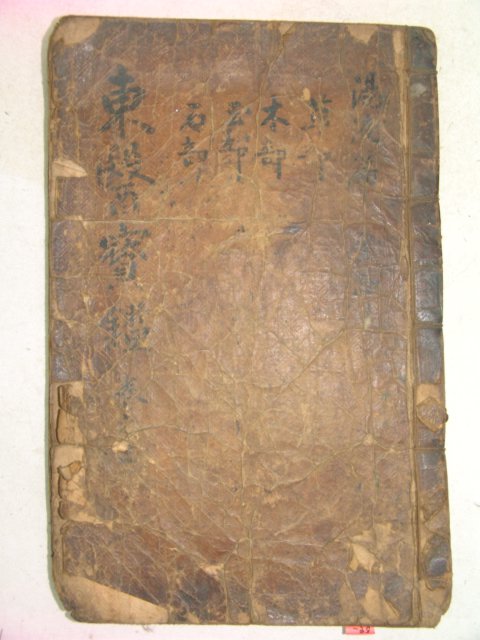 湯液篇
草部
木部
玉部
石部
東醫寶鑑